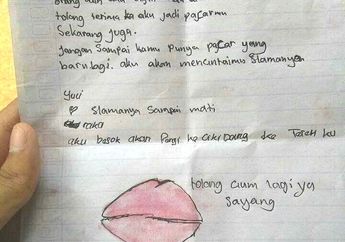 tolong terima ke aku jadi pacarmu
Sekarang juga.
Jangan Sampai kamu Punya pacar yang
baru lagi. aku akan mencintaimu slamanya
Yuci
slamanya Sampai mati
raka
aku besok akan Pergi ke
tolong cium lagi ya
sayang